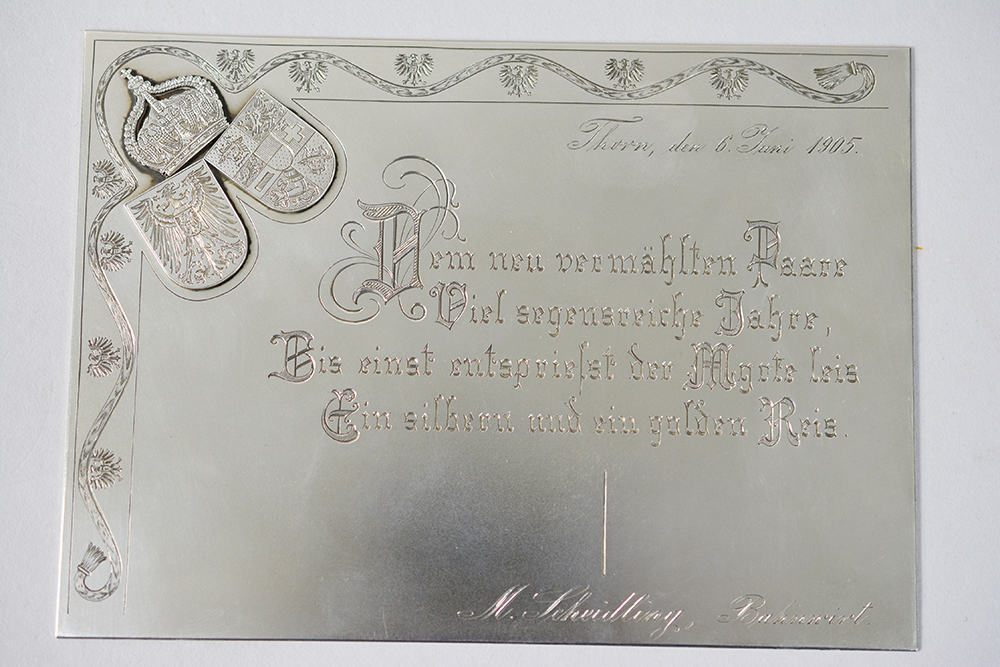 Thorn, den 6. Juni 1905.
Dem neu vermählten Paare
Viel segensreiche Jahre,
Bis einst entspriesst der Myrte leis
Ein silbern und ein golden Reis.
M. Scheidling, Bahnwirt.